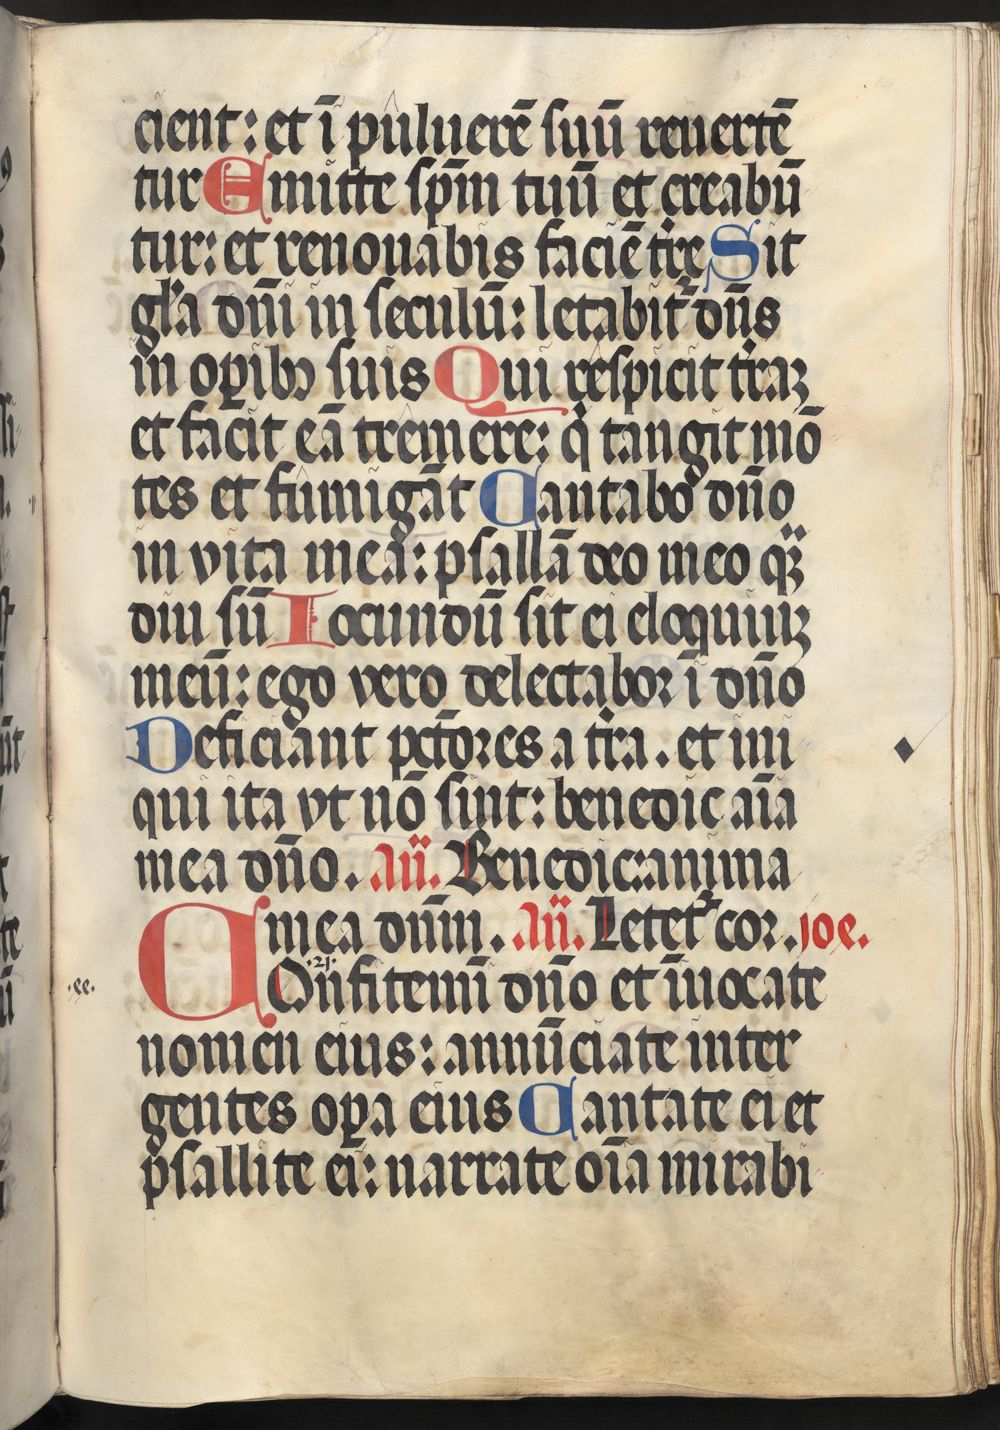 cient: et ī puluerē suū reuertē
tur Emitte sp̄m tuū et creabū
tur: et renouabis faciē tr̄e Sit
gl̄a dn̄i in seculū: letabit᷑ dn̄s
in oꝑibꝫ suis Qui respicit tr̄aꝫ
et facit eā tremere: q̇ tangit mō
tes et fumigāt Cantabo dn̄o
in vita mea: psallā deo meo qᷓꝫ
diu sū Iocundū sit ei eloquiuꝫ
meū: ego vero delectaboꝛ ī dn̄o
Deficiant pctōꝛes a tr̄a. et ini
qui ita vt nō sint: benedic aīa
mea dn̄o. .Añ. Benedic: anima
mea dn̄m. .Añ. Letet᷑ coꝛ. .joe.
.ee. COn̄fitemī dn̄o et īuocate
nomen eius: annūciate inter
gentes oꝑa eius Cantate ei et
psallite ei: narrate oīa mirabi